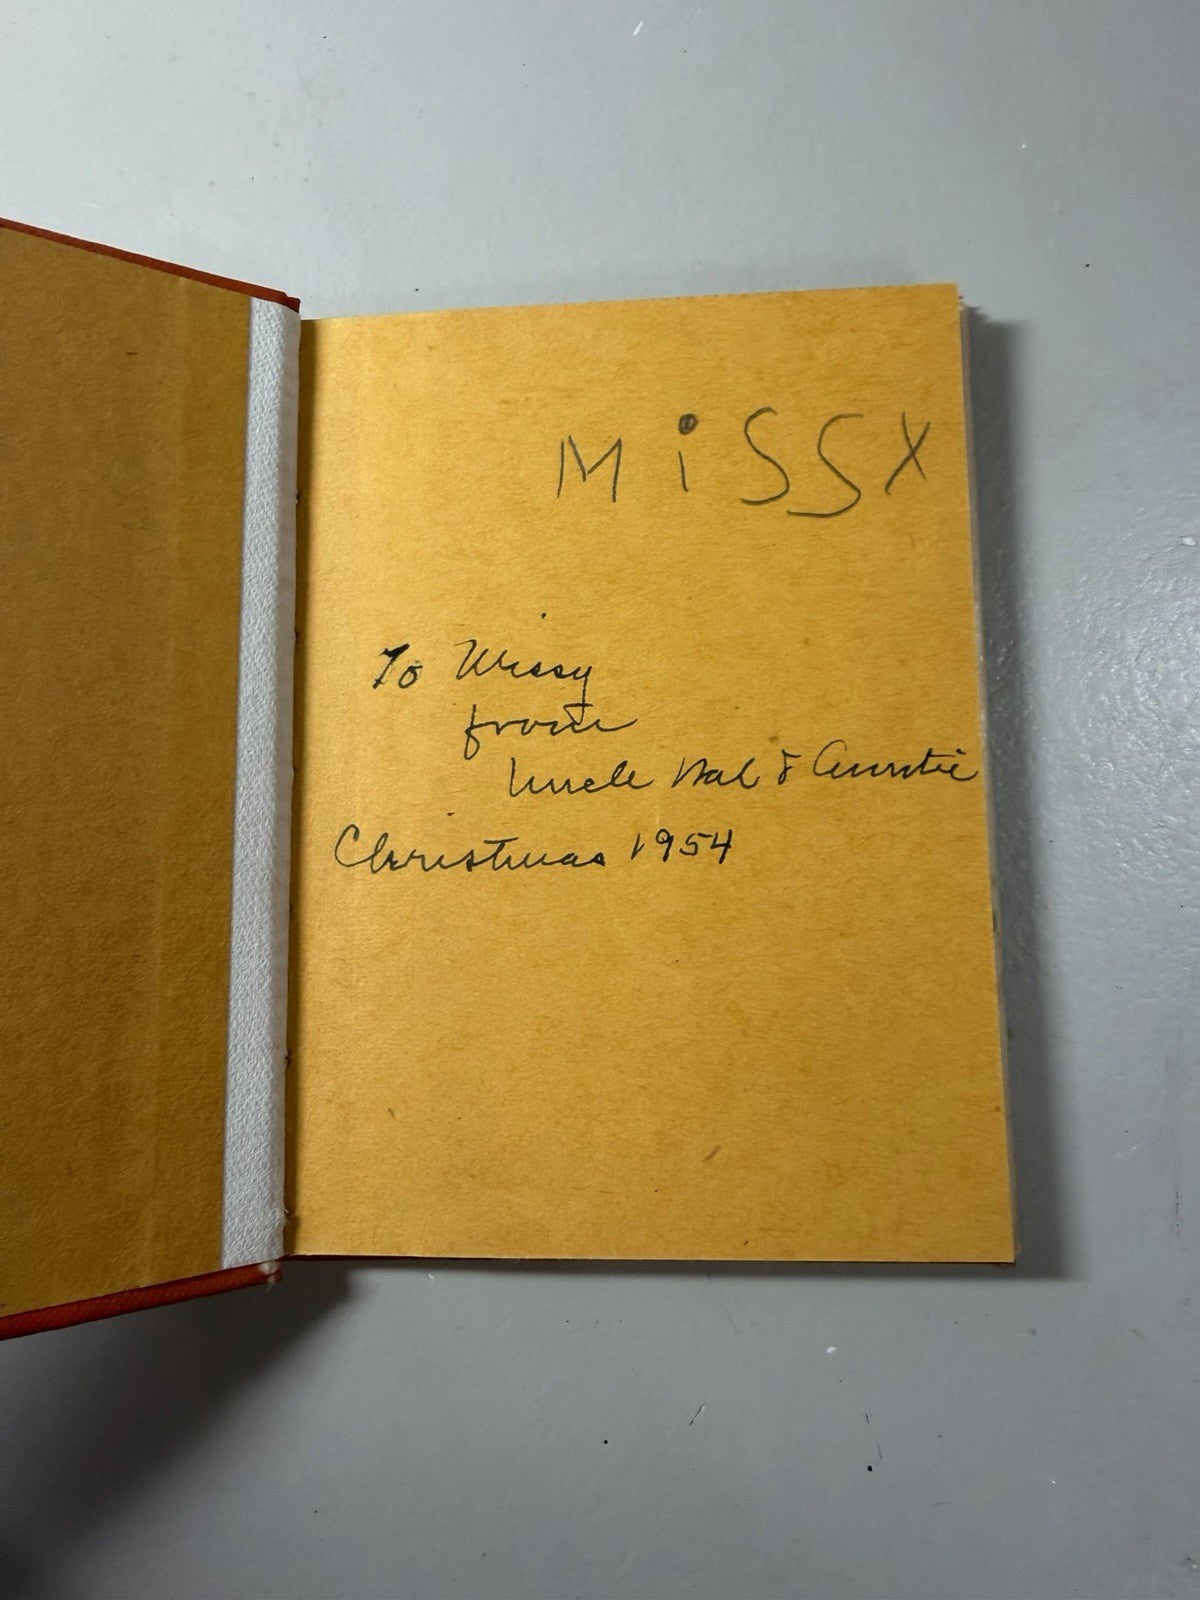 MiSSY
To Missy
from
Uncle Hal & Auntie
Christmas 1954